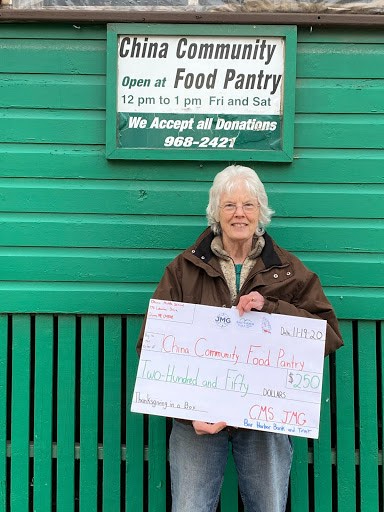 China Community
Open at Food Pantry
12 pm to 1 pm Fri and Sat
We Accept all Donations
968-2421
JMG
Date 11-19-20
China Community Food Pantry
$250
Two-Hundred and Fifty DOLLARS
Thanksgiving in a Box
CMS JMG
Bar Harbor Bank and Trust